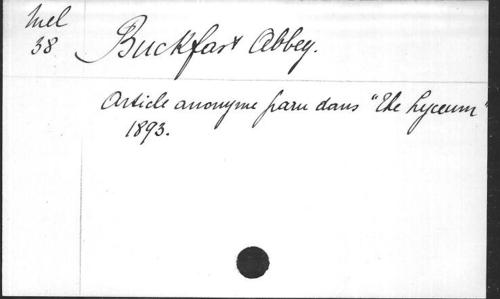 Mel
38
Buckfast Abbey.
Article anonyme paru dans "The Lyceum"
1893.